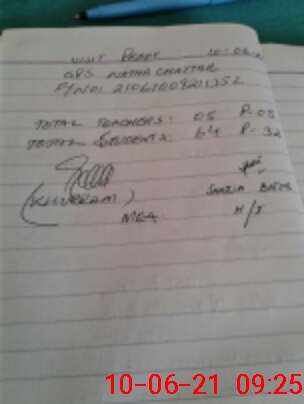 VISIT PROOF 10-06-2
GPS NATHA CHATTAR
F/NO: 21061009211352
TOTAL TEACHERS: 05 P-05
TOTAL STUDENTS: 64 P-32
(KHURRAM) SHAZIA BATOOL
MEA. H/T
10-06-21 09:25